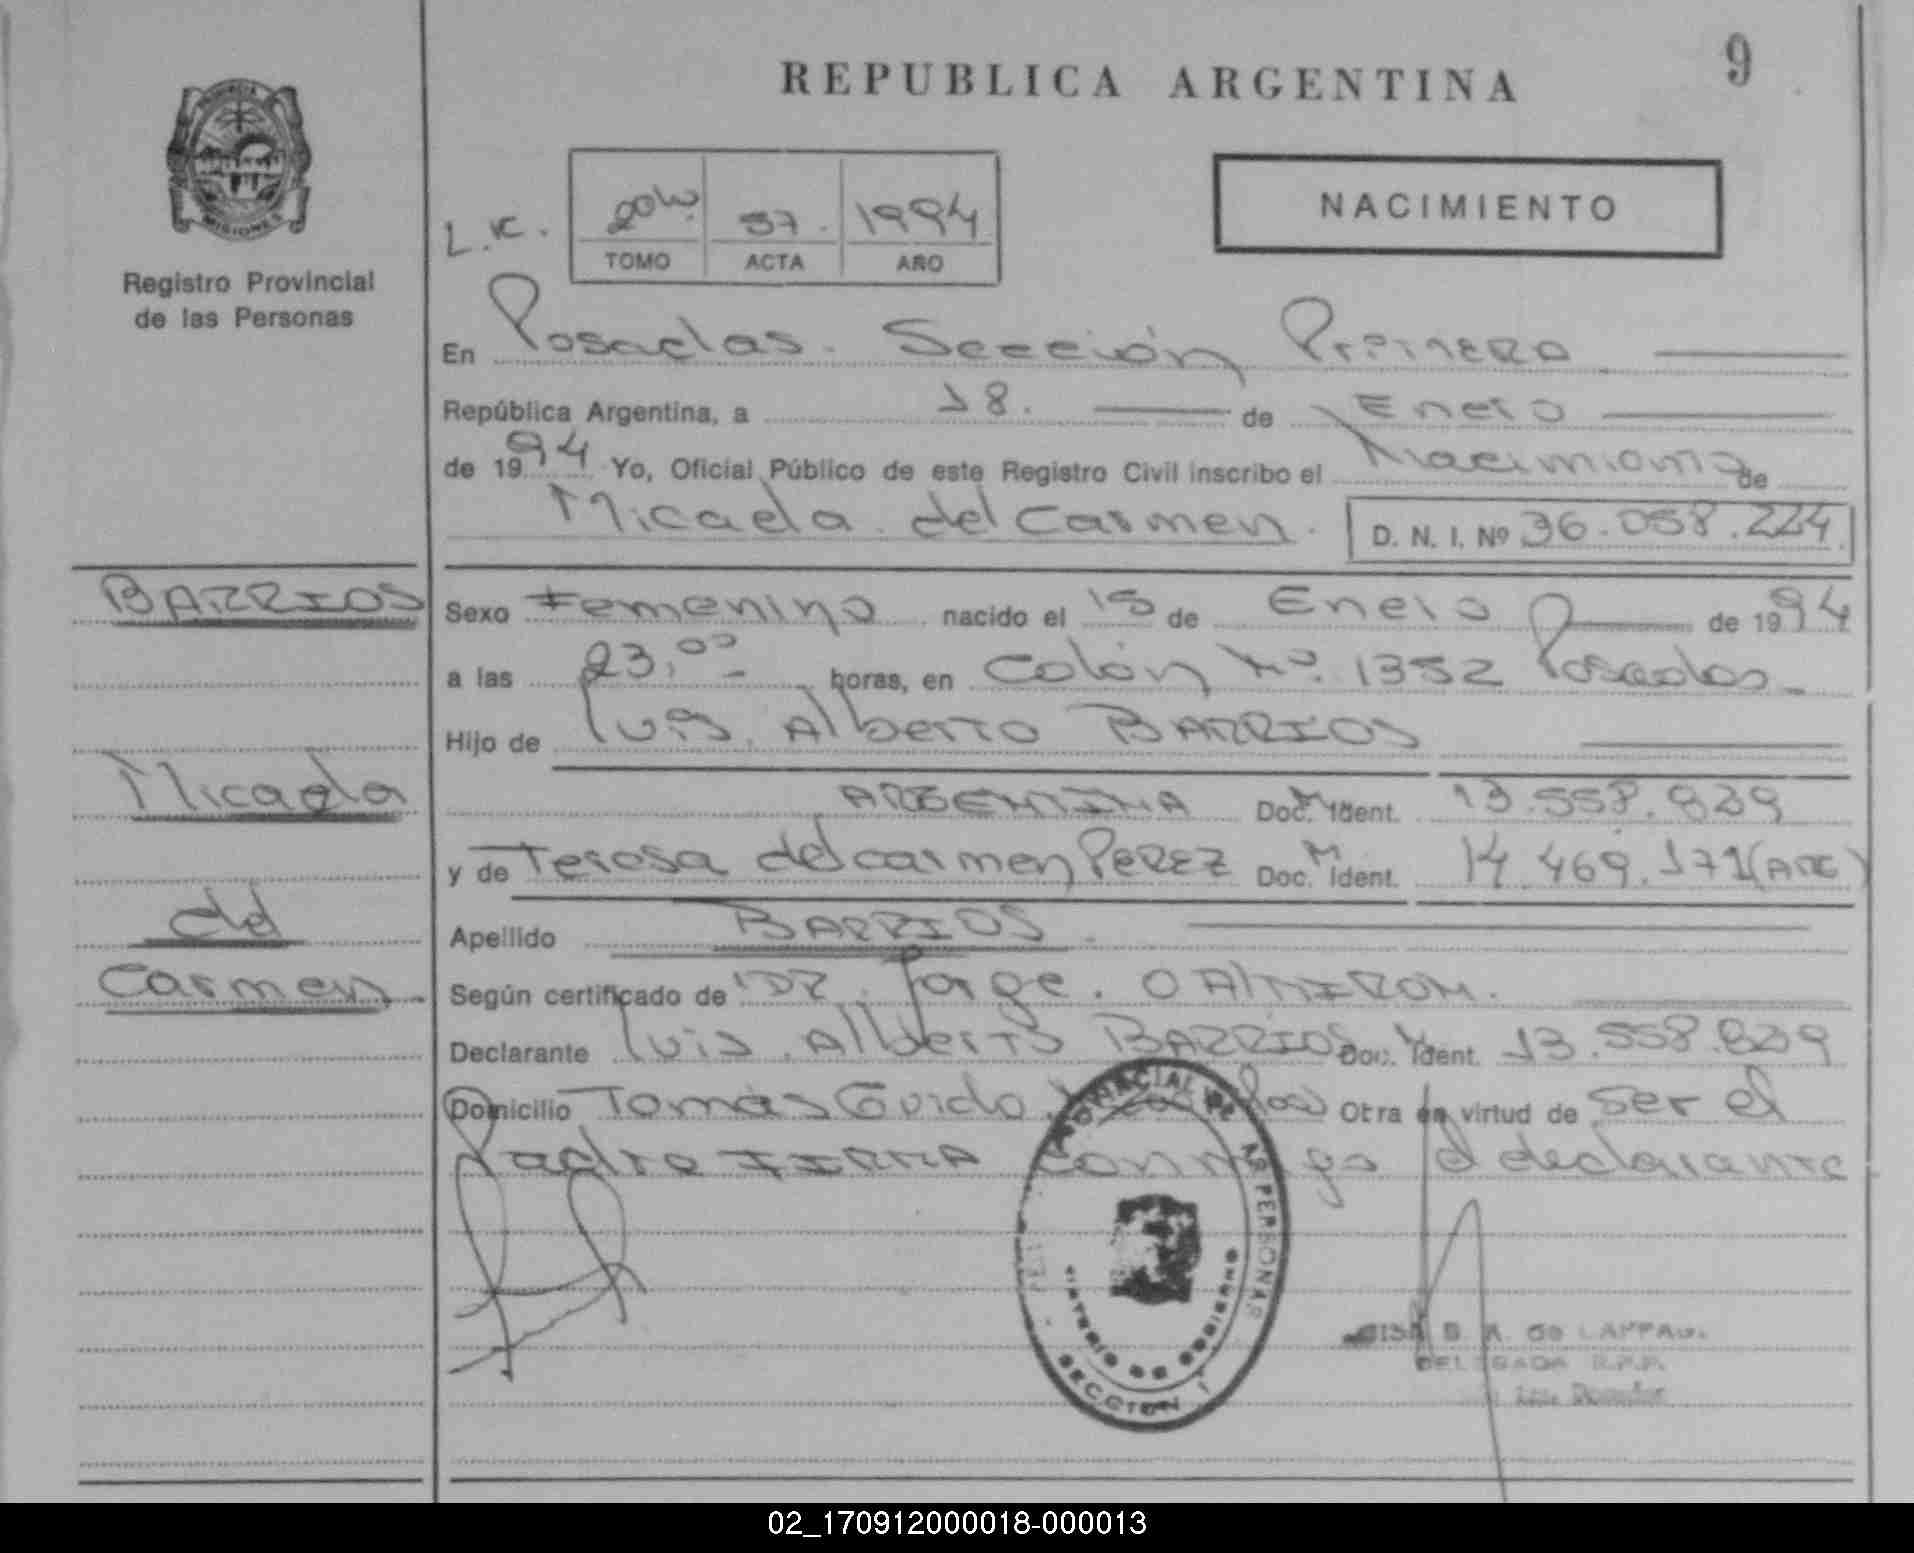 REPUBLICA ARGENTINA
9
Registro Provincial
de las Personas
MISIONES
L.K.
37. 1994
TOMO ACTA AÑO
NACIMIENTO
En Posadas. Sección Primera
República Argentina, a 18. de Enero
de 1994 Yo, Oficial Público de este Registro Civil inscribo el Nacimiento de
Micaela del Carmen. D. N. I. Nº 36.058.224
BARRIOS
Micaela
del
Carmen
Sexo Femenino nacido el 15 de Enero de 1994
a las 23,00 horas, en Colón Nº. 1352 Posadas
Hijo de Luis Alberto BARRIOS
ARGENTINA Doc. M Ident. 13.558.839
y de Teresa del carmen PEREZ Doc. M Ident. 14.469.171 (ARG)
Apellido BARRIOS
Según certificado de DR. Jorge. O AlMIRON.
Declarante Luis Alberto BARRIOS Doc. M Ident. 13.558.839
Domicilio Tomás Guido Otra en virtud de ser el
Padre FIRMA conmigo el declarante
PERSONAS
MINISTERIO DE GOBIERNO
SECCION 1
DELEGADA R.P.P.
02_170912000018-000013